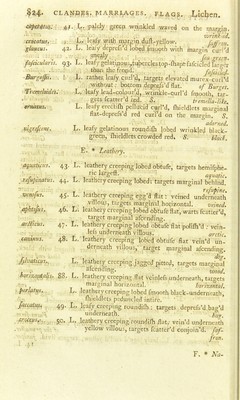 824. CLANDES. MARRIAGES. FLAGS. Lichen.
caperatus. 41. L. palely green wrinkled waved on the margin.
L. leafy with margin dust-yellow.
glaucus. 42. L. leafy depress'd lobed smooth with margin curl'd
fascicularis. 93. L. leafy gelatinous, tubercles top-shape fascicled larger
than the frond. fascicled.
Burgessii. L. rather leafy curl'd, targets elevated margin curl'd
without: bottom depress'd flat. Burges.
L. leafy lead-colour'd, wrinkle-curl'd smooth, targets scatter'd red.
L. leafy erectish pellucid curl'd, shieldlets marginal
flat-depress'd red curl'd on the margin.
nigrescens. L. leafy gelatinous roundish lobed wrinkled black-
green, shieldlets crowded red. black.
E. * Leathery.
43. L. leathery creeping lobed obtuse, targets hemispheric largest. aquatic.
resupinatus. 44. L. leathery creeping lobed: targets marginal behind.
resupine.
venosus. 45. L. leathery creeping egg'd flat: veined underneath
villous, targets marginal horizontal. veined.
aphtosus. 46. L. leathery creeping lobed obtuse flat, warts scatter'd,
target marginal ascending.
arcticus. 47. L. leathery creeping lobed obtuse flat polish'd: veinless underneath villous. arctic.
caninus. 48. L. leathery creeping lobed obtuse flat vein'd underneath villous, target marginal ascending.
dog.
sylvaticus. L. leathery creeping jagged pitted, targets marginal
ascending. wood.
horizontalis. 88. L. leathery creeping flat veinless underneath, targets
marginal horizontal. horizontal.
perlatus. L. leathery creeping lobed smooth black-underneath,
shieldlets peduncled intire.
saccatus. 49. L. leafy creeping roundish: targets depress'd bag'd
underneath. bag.
croceus. 50. L. leathery creeping roundish flat, vein'd underneath
yellow villous, targets scatter'd conjoin'd. saf-
fron.
F. * No-